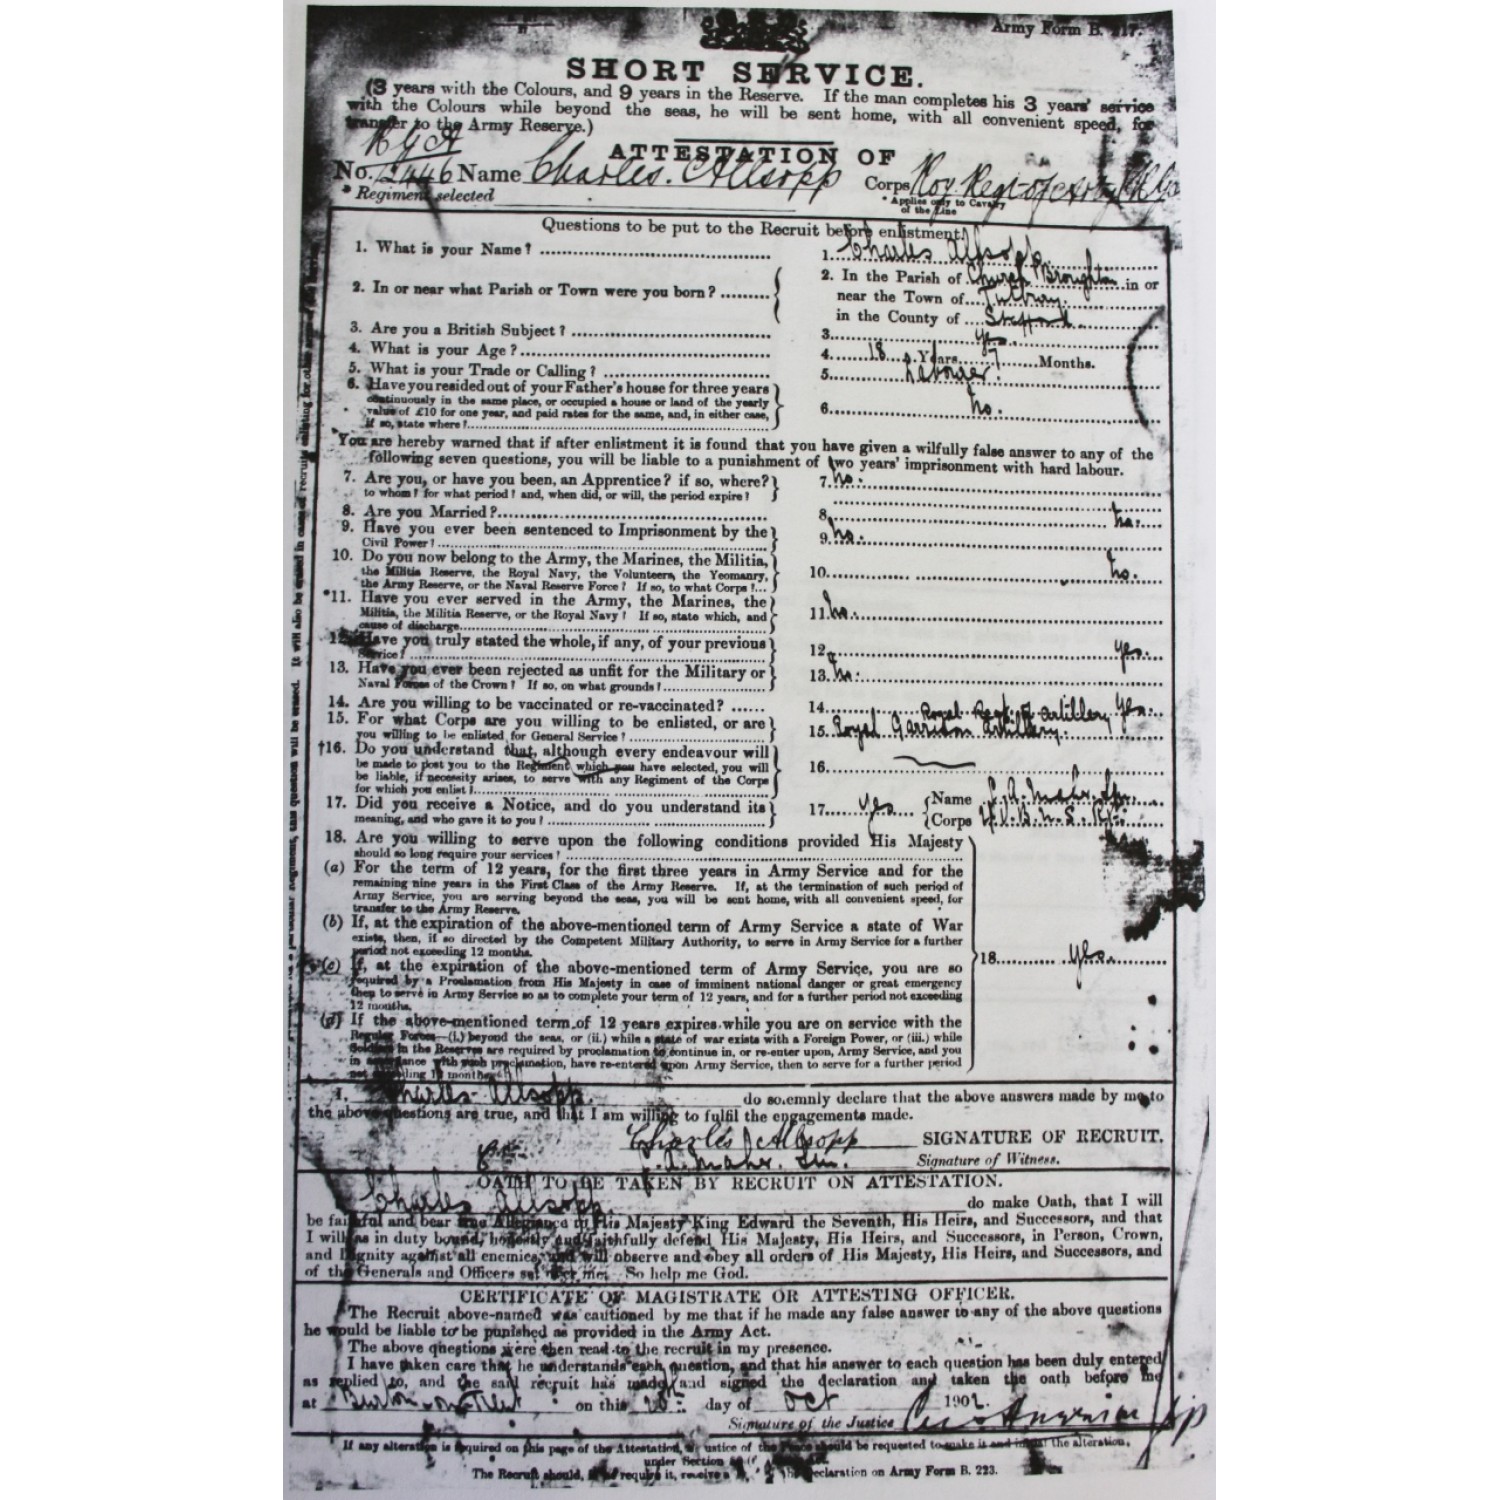 Army Form B. 217.
SHORT SERVICE.
(3 years with the Colours, and 9 years in the Reserve. If the man completes his 3 years' service
with the Colours while beyond the seas, he will be sent home, with all convenient speed, for
transfer to the Army Reserve.)
RGA
ATTESTATION OF
No. 12446 Name Charles Allsopp Corps Roy Regt of Arty RGA
* Regiment selected
* Applies only to Cavalry
of the Line
Questions to be put to the Recruit before enlistment.
1. What is your Name? 1. Charles Allsopp
2. In or near what Parish or Town were you born? 2. In the Parish of Church Broughton in or
near the Town of Tutbury
in the County of Stafford
3. Are you a British Subject? 3. Yes
4. What is your Age? 4. 18 Years 7 Months.
5. What is your Trade or Calling? 5. Labourer
6. Have you resided out of your Father's house for three years
continuously in the same place, or occupied a house or land of the yearly
value of £10 for one year, and paid rates for the same, and, in either case,
if so, state where? 6. No.
You are hereby warned that if after enlistment it is found that you have given a wilfully false answer to any of the
following seven questions, you will be liable to a punishment of two years' imprisonment with hard labour.
7. Are you, or have you been, an Apprentice? if so, where? 7. No.
to whom? for what period? and, when did, or will, the period expire?
8. Are you Married? 8. No.
9. Have you ever been sentenced to Imprisonment by the
Civil Power? 9. No.
10. Do you now belong to the Army, the Marines, the Militia,
the Militia Reserve, the Royal Navy, the Volunteers, the Yeomanry,
the Army Reserve, or the Naval Reserve Force? If so, to what Corps? 10. No.
*11. Have you ever served in the Army, the Marines, the
Militia, the Militia Reserve, or the Royal Navy? If so, state which, and
cause of discharge 11. No.
12. Have you truly stated the whole, if any, of your previous
Service? 12. Yes.
13. Have you ever been rejected as unfit for the Military or
Naval Forces of the Crown? If so, on what grounds? 13. No.
14. Are you willing to be vaccinated or re-vaccinated? 14. Yes.
15. For what Corps are you willing to be enlisted, or are Royal Regt of Artillery
you willing to be enlisted for General Service? 15. Royal Garrison Artillery.
†16. Do you understand that, although every endeavour will
be made to post you to the Regiment which you have selected, you will
be liable, if necessity arises, to serve with any Regiment of the Corps
for which you enlist? 16.
17. Did you receive a Notice, and do you understand its
meaning, and who gave it to you? 17. Yes Name
Corps
18. Are you willing to serve upon the following conditions provided His Majesty
should so long require your services?
(a) For the term of 12 years, for the first three years in Army Service and for the
remaining nine years in the First Class of the Army Reserve. If, at the termination of such period of
Army Service, you are serving beyond the seas, you will be sent home, with all convenient speed, for
transfer to the Army Reserve.
(b) If, at the expiration of the above-mentioned term of Army Service a state of War
exists, then, if so directed by the Competent Military Authority, to serve in Army Service for a further
period not exceeding 12 months.
18. Yes.
(c) If, at the expiration of the above-mentioned term of Army Service, you are so
required by a Proclamation from His Majesty in case of imminent national danger or great emergency
then to serve in Army Service so as to complete your term of 12 years, and for a further period not exceeding
12 months.
(d) If the above-mentioned term of 12 years expires while you are on service with the
Regular Forces—(i.) beyond the seas, or (ii.) while a state of war exists with a Foreign Power, or (iii.) while
Soldiers in the Reserves are required by proclamation to continue in, or re-enter upon, Army Service, and you
in accordance with such proclamation, have re-entered upon Army Service, then to serve for a further period
not exceeding 12 months.
I, Charles Allsopp do solemnly declare that the above answers made by me to
the above questions are true, and that I am willing to fulfil the engagements made.
Charles Allsopp SIGNATURE OF RECRUIT.
Signature of Witness.
OATH TO BE TAKEN BY RECRUIT ON ATTESTATION.
Charles Allsopp do make Oath, that I will
be faithful and bear true Allegiance to His Majesty King Edward the Seventh, His Heirs, and Successors, and that
I will, as in duty bound, honestly and faithfully defend His Majesty, His Heirs, and Successors, in Person, Crown,
and Dignity against all enemies, and will observe and obey all orders of His Majesty, His Heirs, and Successors, and
of the Generals and Officers set over me. So help me God.
CERTIFICATE OF MAGISTRATE OR ATTESTING OFFICER.
The Recruit above-named was cautioned by me that if he made any false answer to any of the above questions
he would be liable to be punished as provided in the Army Act.
The above questions were then read to the recruit in my presence.
I have taken care that he understands each question, and that his answer to each question has been duly entered
as replied to, and the said recruit has made and signed the declaration and taken the oath before me
at Burton-on-Trent on this 20th day of Oct 1902.
Signature of the Justice
If any alteration is required on this page of the Attestation, a Justice of the Peace should be requested to make it and initial the alteration,
under Section
The Recruit should, if he require it, receive a Declaration on Army Form B. 223.